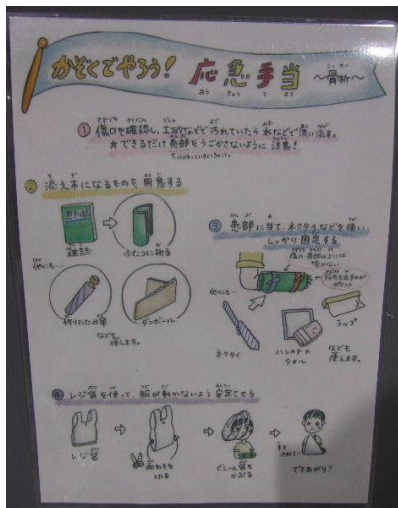 かぞくでやろう! 応急手当 ~骨折~
① 傷口を確認し、土砂などで汚れていたら水などで洗い流す。
☆できるだけ患部をうごかさないように注意!
② 添え木になるものを用意する
雑誌
ふたつに折る
他にも…
折りたたみ傘
ダンボール
なども
使えます。
③ 患部に当て、ネクタイなどを使い
しっかり固定する
他にも…
ネクタイ
ハンカチや
タオル
ラップ
なども
使えます。
④ レジ袋を使って、腕が動かないよう安定させる
レジ袋
両わきを
切る
ビニール袋を
かぶる
できあがり!